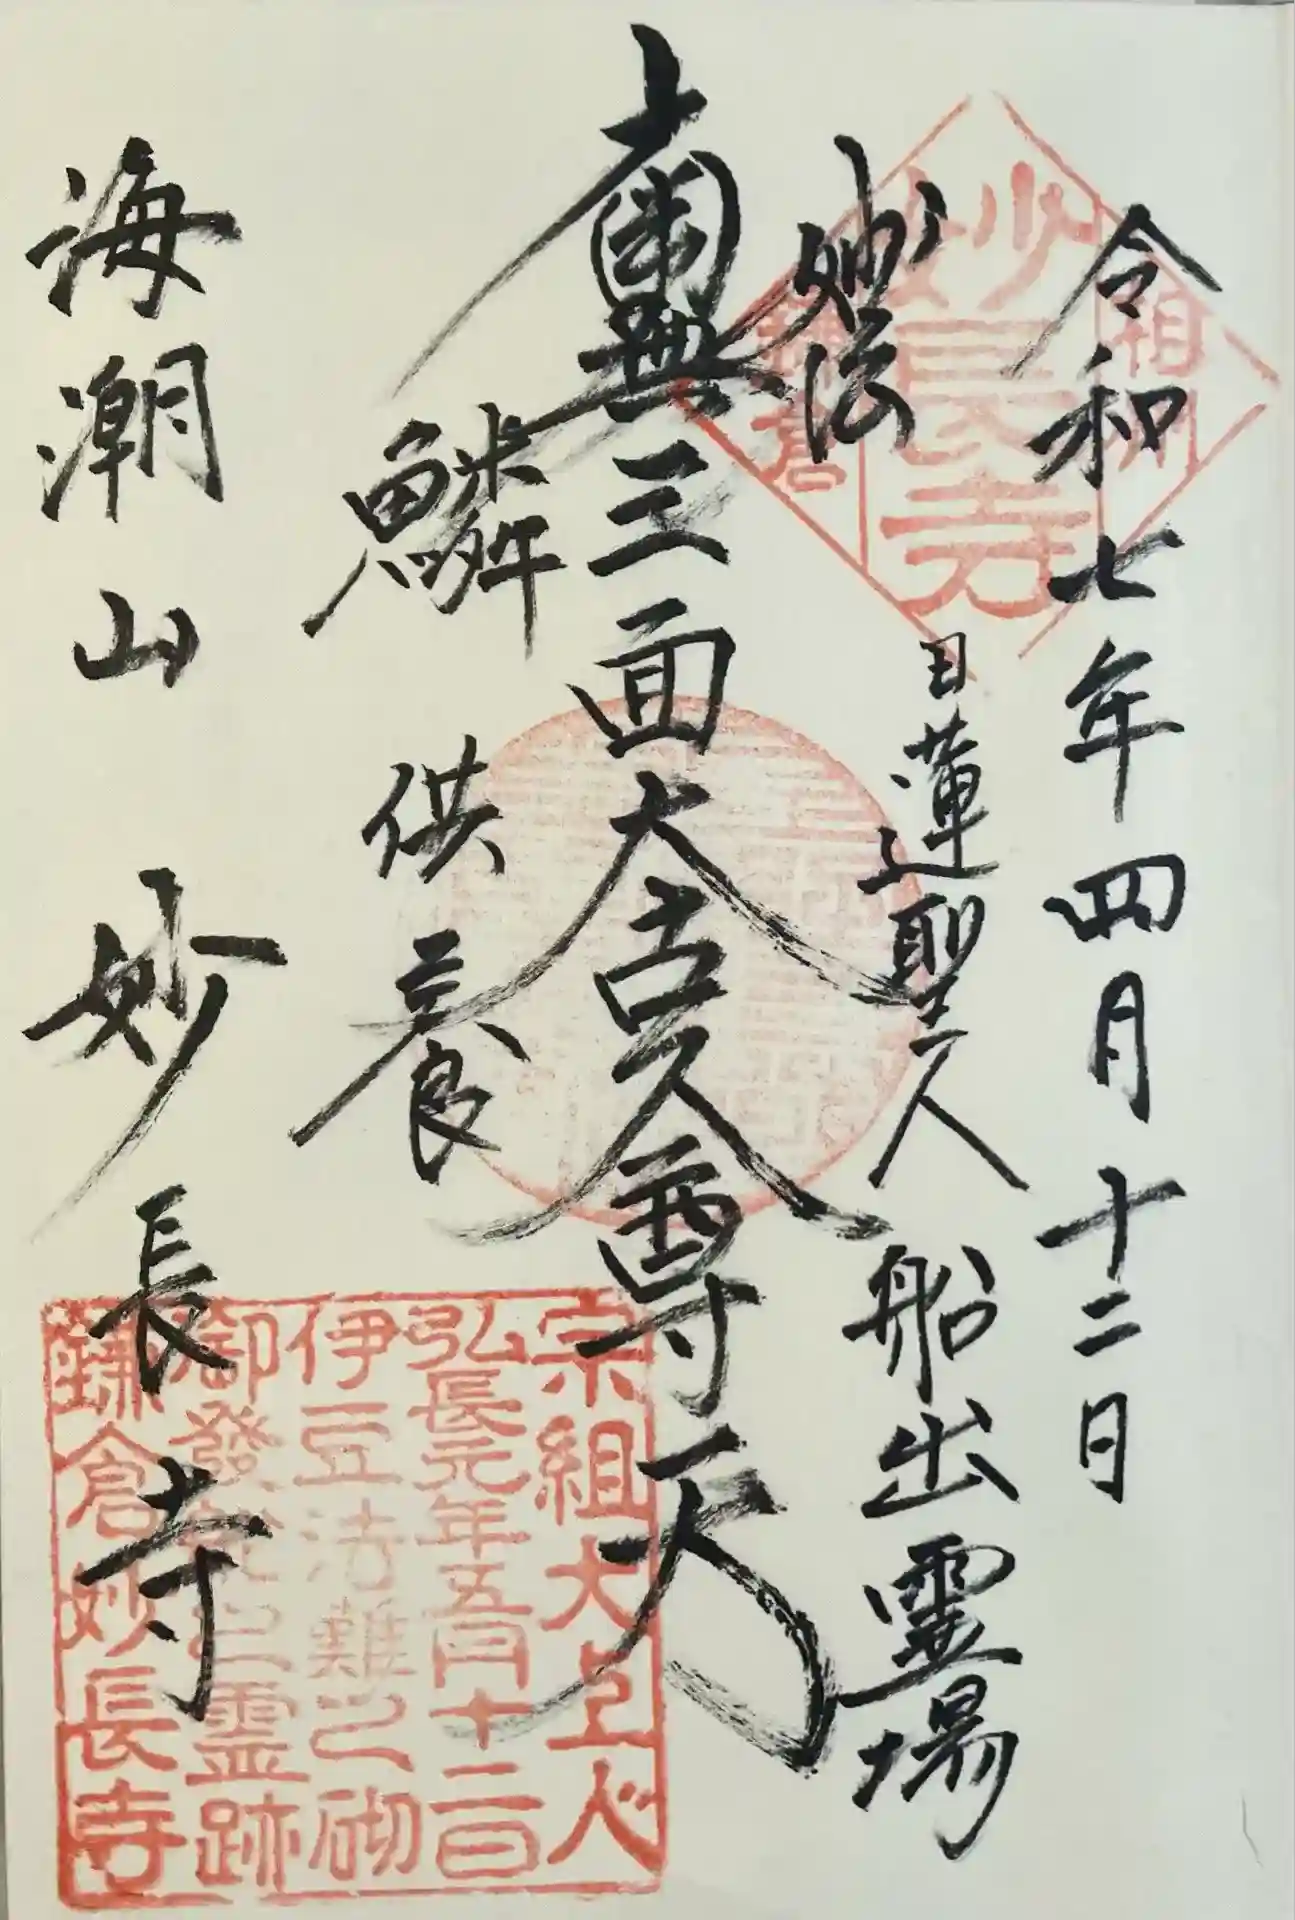 令和七年四月十二日
妙法
日蓮聖人船出霊場
南無三面大古久尊天
鱗供養
海潮山 妙長寺
相州
妙長寺
鎌倉
宗祖大上人
弘長元年五月十二日
伊豆法難之砌
御發之霊跡
鎌倉妙長寺